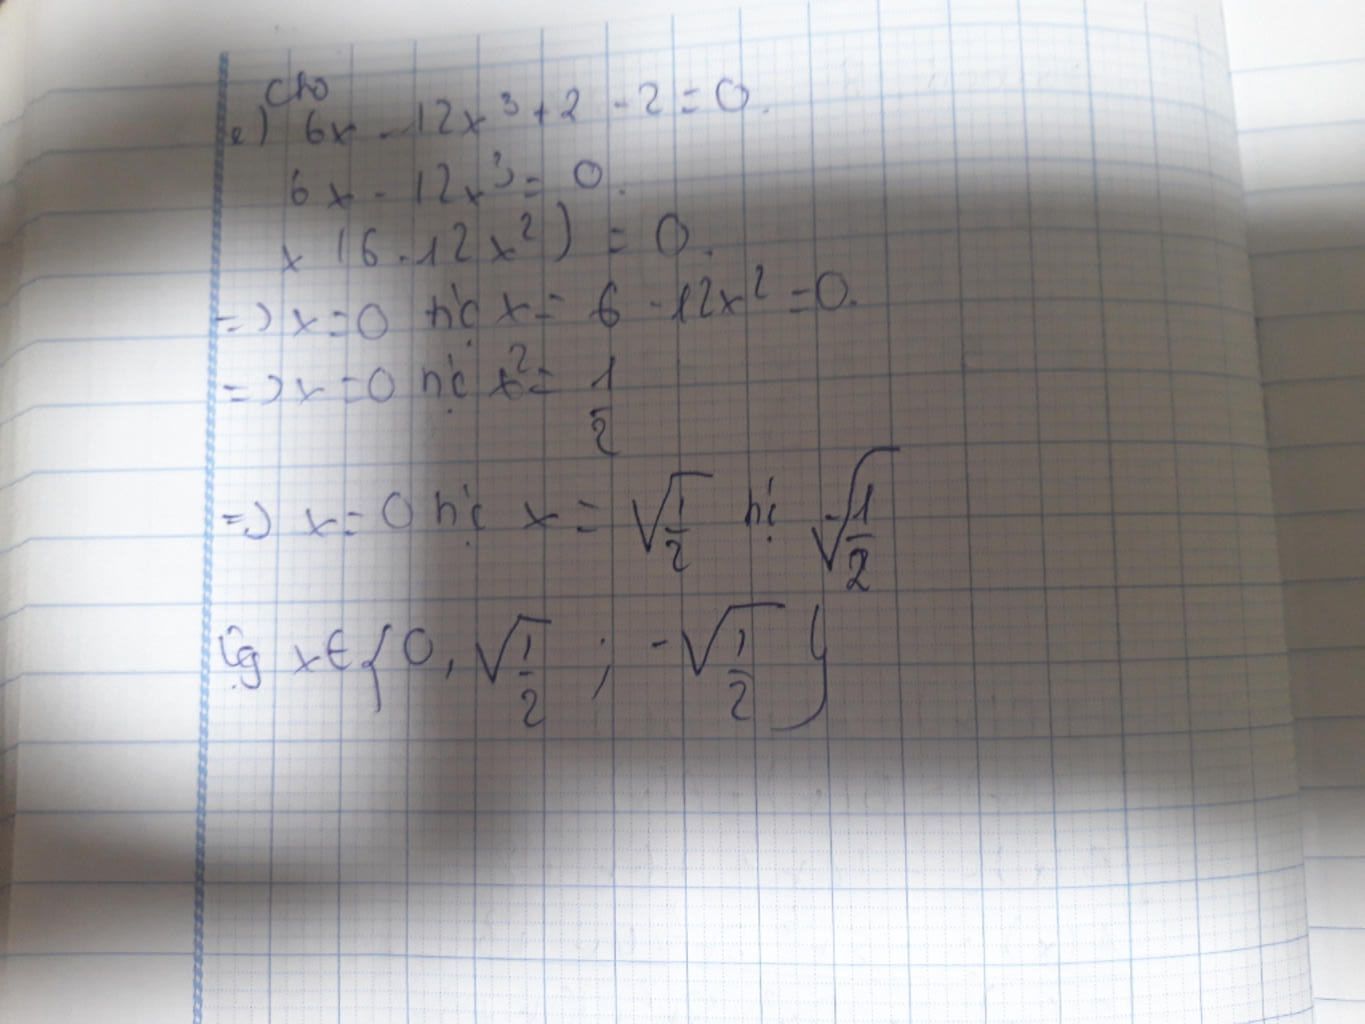 Cho
e) 6x - 12x³ + 2 - 2 = 0.
6x - 12x³ = 0.
x (6 - 12x²) = 0.
=> x = 0 h/c x = 6 - 12x² = 0.
=> x = 0 h/c x² = 1/2
=> x = 0 h/c x = √(1/2) h/c √(-1/2)
x ∈ { 0, √(1/2) ; -√(1/2) }